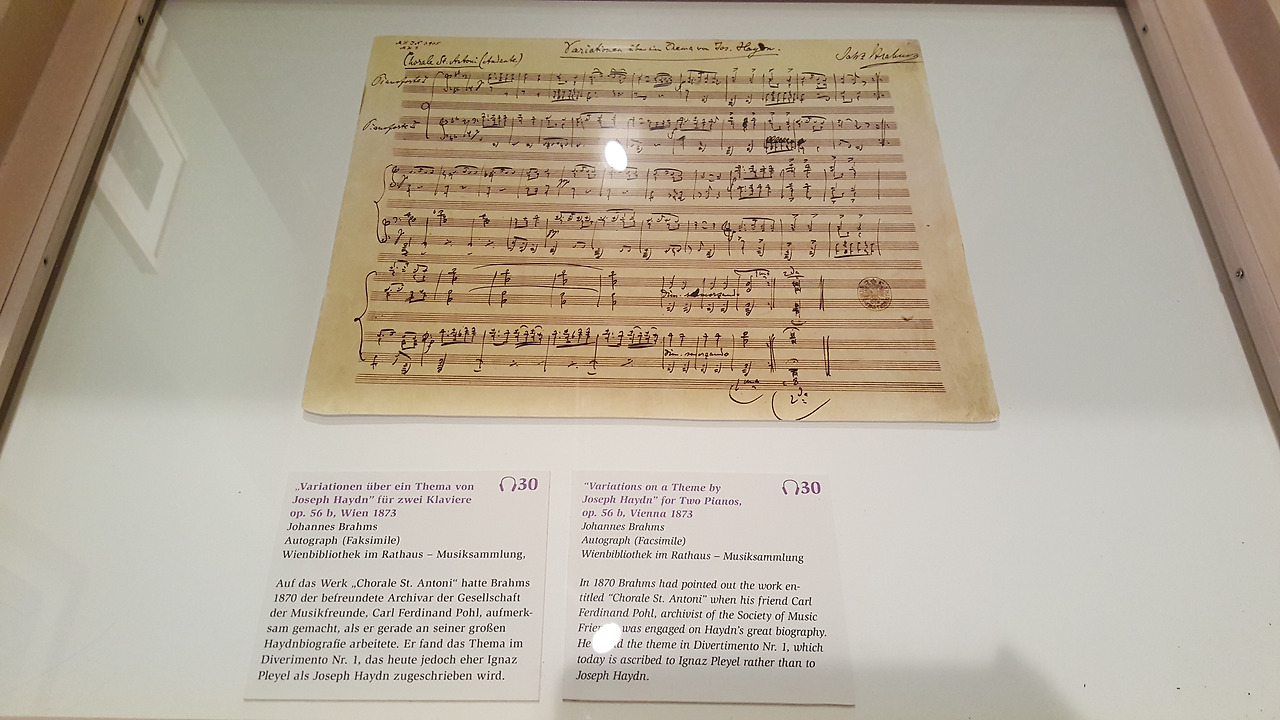 Variationen über ein Thema von Jos. Haydn.
Chorale St. Antoni (Andante)
Joh. Brahms
Pianoforte 1
Pianoforte 2
dim.
dim.
„Variationen über ein Thema von
Joseph Haydn" für zwei Klaviere
op. 56 b, Wien 1873
30
Johannes Brahms
Autograph (Faksimile)
Wienbibliothek im Rathaus – Musiksammlung,
Auf das Werk „Chorale St. Antoni" hatte Brahms
1870 der befreundete Archivar der Gesellschaft
der Musikfreunde, Carl Ferdinand Pohl, aufmerk-
sam gemacht, als er gerade an seiner großen
Haydnbiografie arbeitete. Er fand das Thema im
Diverimento Nr. 1, das heute jedoch eher Ignaz
Pleyel als Joseph Haydn zugeschrieben wird.
"Variations on a Theme by
Joseph Haydn" for Two Pianos,
op. 56 b, Vienna 1873
30
Johannes Brahms
Autograph (Facsimile)
Wienbibliothek im Rathaus – Musiksammlung
In 1870 Brahms had pointed out the work en-
titled "Chorale St. Antoni" when his friend Carl
Ferdinand Pohl, archivist of the Society of Music
was engaged on Haydn's great biography.
He the theme in Divertimento Nr. 1, which
today is ascribed to Ignaz Pleyel rather than to
Joseph Haydn.